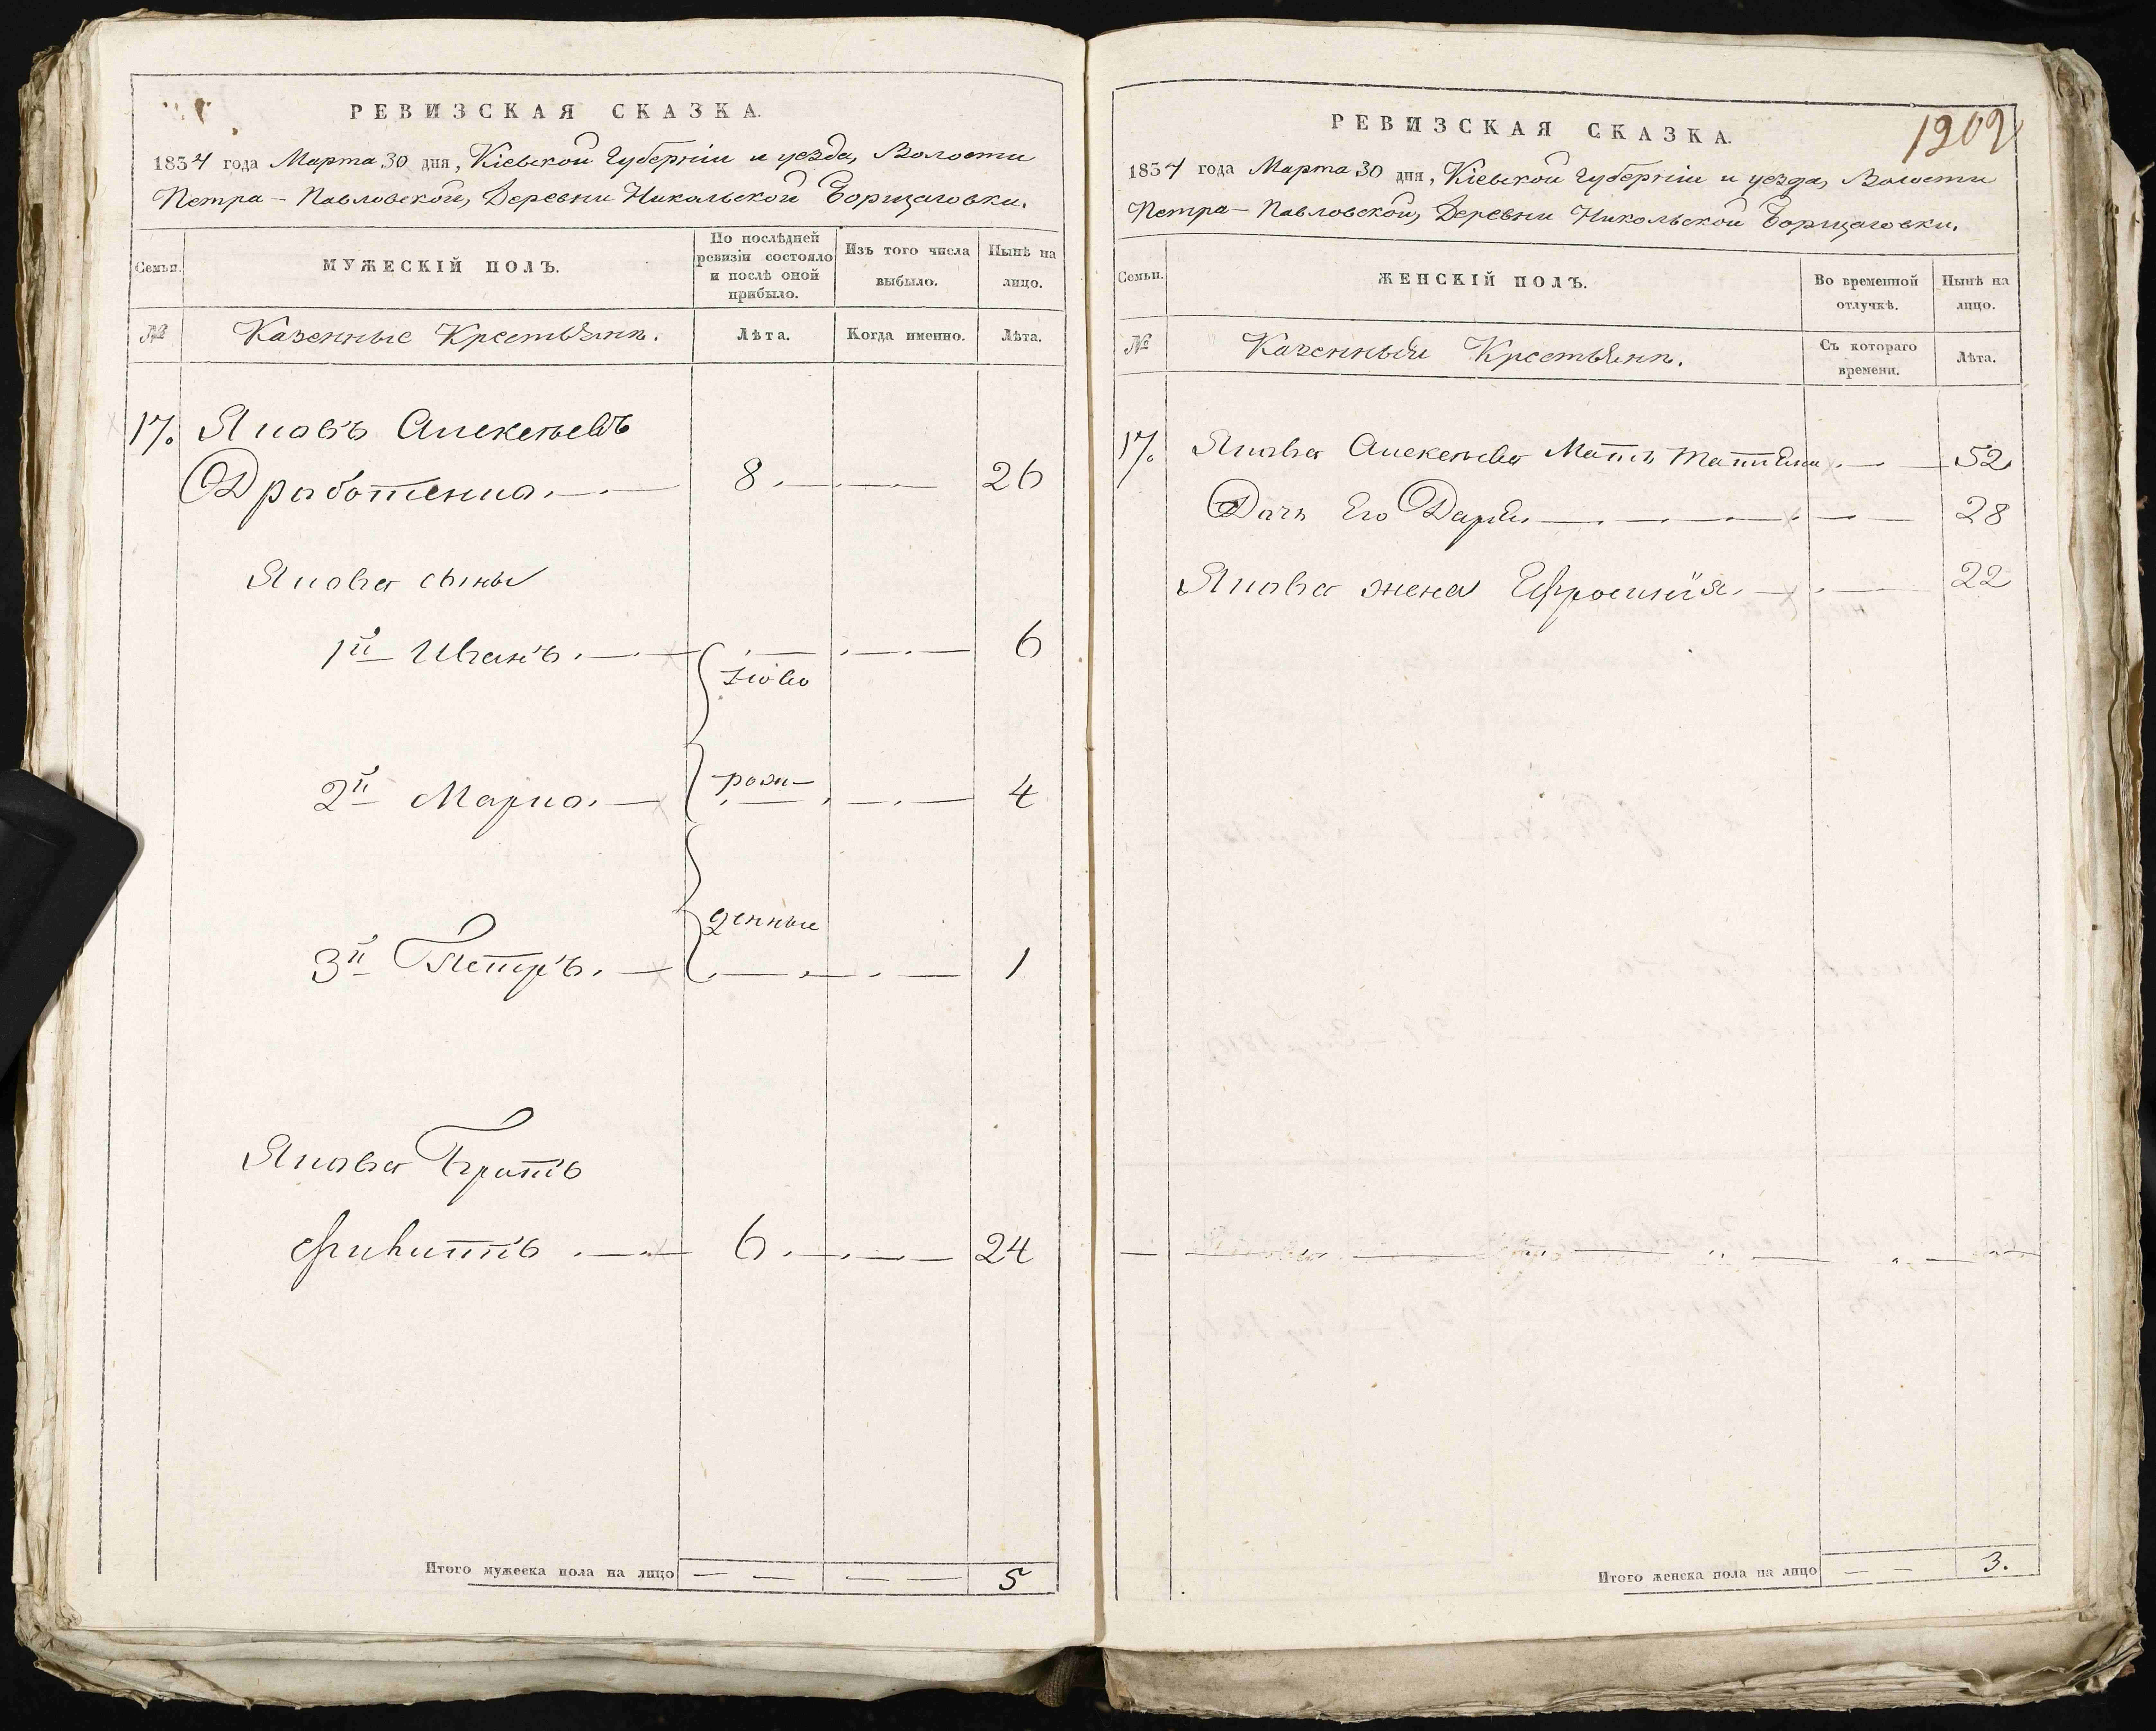 РЕВИЗСКАЯ СКАЗКА.
1834 года Марта 30 дня, Кіевской Губерніи и уезда, Волости
Петра-Павловской, Деревни Никольской Борщаговки.
Семьи.
МУЖЕСКІЙ ПОЛЪ.
По послѣдней ревизіи состояло и послѣ оной прибыло.
Изъ того числа выбыло.
Нынѣ на лицо.
№
Казенные Крестьяни.
Лѣта.
Когда именно.
Лѣта.
17. Яковъ Алексѣевъ
Дработенко. 8. 26
Якова сыны
1й Иванъ. 6
ново
2й Марко. рож- 4
денные
3й Петръ. 1
Якова Братъ
Филиппъ 6. 24
Итого мужеска пола на лицо — — — — 5
РЕВИЗСКАЯ СКАЗКА.
1202
1834 года Марта 30 дня, Кіевской Губерніи и уезда, Волости
Петра-Павловской, Деревни Никольской Борщаговки.
Семьи.
ЖЕНСКІЙ ПОЛЪ.
Во временной отлучкѣ.
Нынѣ на лицо.
№
Казенныи Крестьяни.
Съ котораго времени.
Лѣта.
17. Якова Алексѣева Мать Татьяна 52
Дачь Его Дарья 28
Якова жена Ефросинія. 22
Итого женска пола на лицо — — 3.